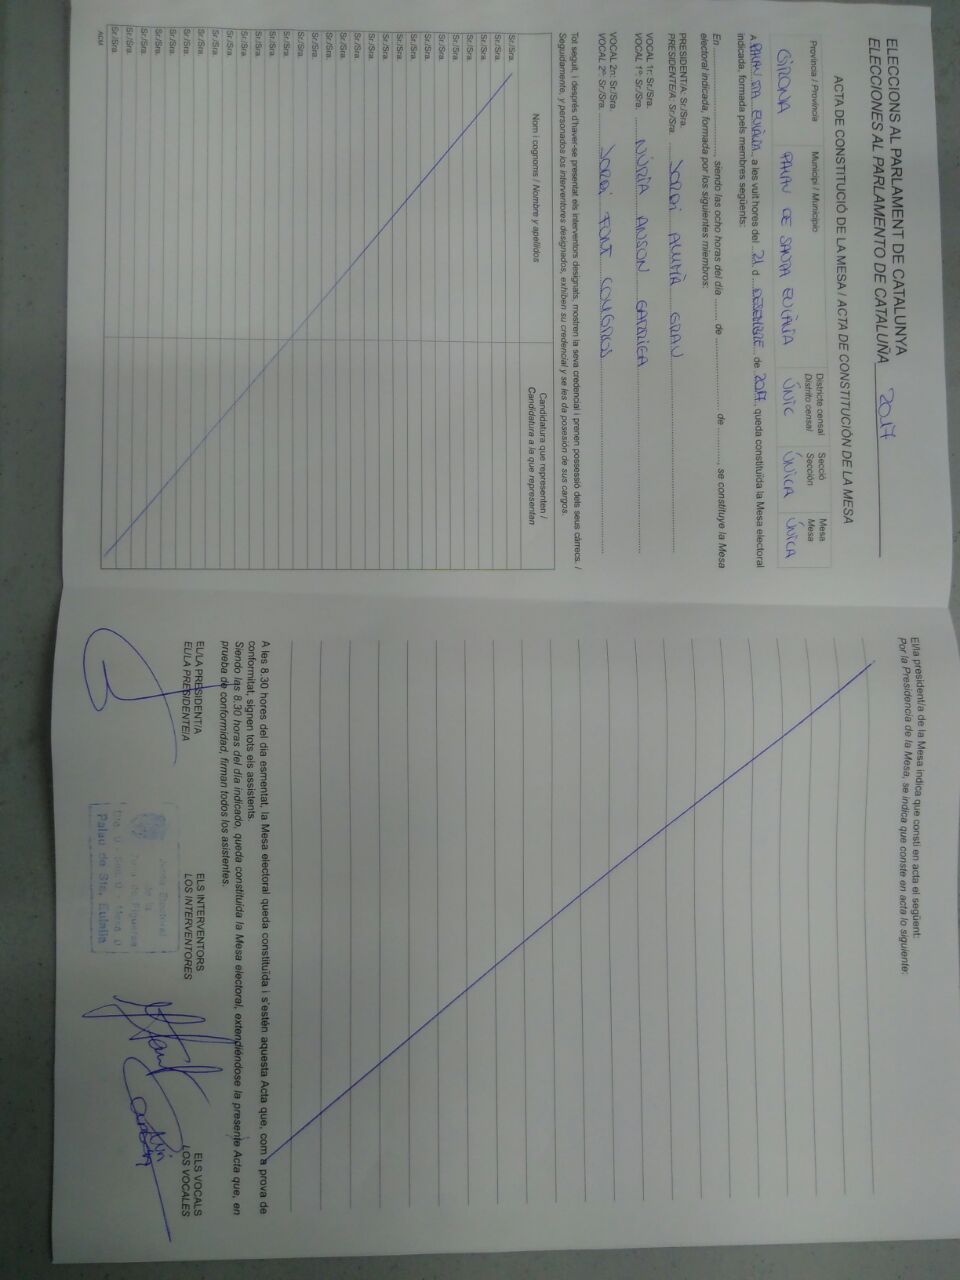 ELECCIONS AL PARLAMENT DE CATALUNYA
ELECCIONES AL PARLAMENTO DE CATALUÑA 2017
ACTA DE CONSTITUCIÓ DE LA MESA / ACTA DE CONSTITUCIÓN DE LA MESA
Província / Provincia Municipi / Municipio Districte censal Secció Mesa
Distrito censal Sección Mesa
GIRONA PALAU DE SANTA EULÀLIA ÚNIC ÚNICA ÚNICA
A PALAU STA. EULÀLIA, a les vuit hores del 21 d DESEMBRE de 2017, queda constituïda la Mesa electoral
indicada, formada pels membres següents:
En siendo las ocho horas del día de de se constituye la Mesa
electoral indicada, formada por los siguientes miembros:
PRESIDENT/A: Sr./Sra.
PRESIDENTE/A: Sr./Sra. JORDI GRAU
VOCAL 1r: Sr./Sra.
VOCAL 1º: Sr./Sra. NÚRIA ANSON GARRIGA
VOCAL 2n: Sr./Sra.
VOCAL 2º: Sr./Sra. JORDI FONT
Tot seguit, i després d'haver-se presentat els interventors designats, mostren la seva credencial i prenen possessió dels seus càrrecs. /
Seguidamente, y personados los interventores designados, exhiben su credencial y se les da posesión de sus cargos.
Nom i cognoms / Nombre y apellidos Candidatura que representen /
Candidatura a la que representan
Sr./Sra.
Sr./Sra.
Sr./Sra.
Sr./Sra.
Sr./Sra.
Sr./Sra.
Sr./Sra.
Sr./Sra.
Sr./Sra.
Sr./Sra.
Sr./Sra.
Sr./Sra.
Sr./Sra.
Sr./Sra.
Sr./Sra.
Sr./Sra.
Sr./Sra.
Sr./Sra.
Sr./Sra.
Sr./Sra.
Sr./Sra.
Sr./Sra.
Sr./Sra.
Sr./Sra.
Sr./Sra.
Sr./Sra.
Sr./Sra.
Sr./Sra.
Sr./Sra.
El/la president/a de la Mesa indica que consti en acta el següent:
Por la Presidencia de la Mesa, se indica que conste en acta lo siguiente:
A les 8.30 hores del dia esmentat, la Mesa electoral queda constituïda i s'estén aquesta Acta que, com a prova de
conformitat, signen tots els assistents.
Siendo las 8.30 horas del día indicado, queda constituida la Mesa electoral, extendiéndose la presente Acta que, en
prueba de conformidad, firman todos los asistentes.
EL/LA PRESIDENT/A ELS INTERVENTORS ELS VOCALS
EL/LA PRESIDENTE/A LOS INTERVENTORES LOS VOCALES
Junta Electoral
de la
Zona de Figueres
Palau de Sta. Eulalia